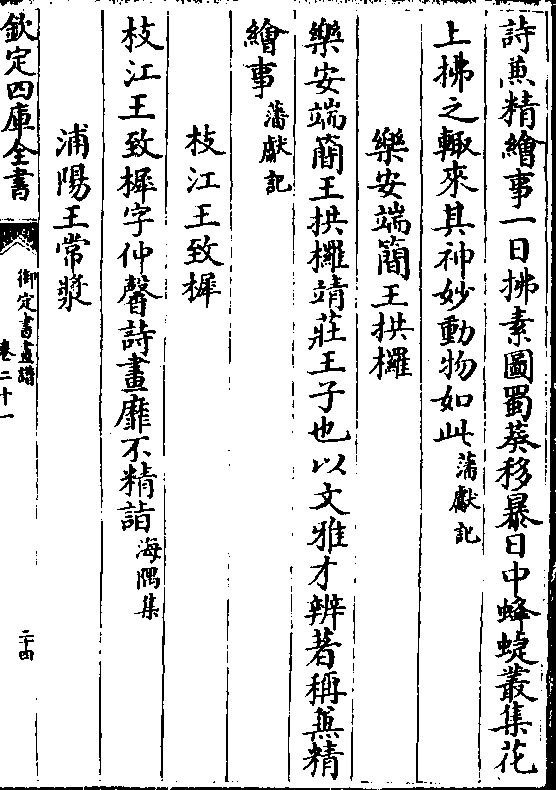 詩兼精繪事一日拂素圖蜀葵移暴日中蜂蜨叢集花
上拂之輙來其神妙動物如此藩獻記
樂安端簡王拱欏
樂安端簡王拱欏靖莊王子也以文雅才辨著稱兼精
繪事藩獻記
枝江王致樨
枝江王致樨字仲馨詩畫靡不精詣海隅集
浦陽王常㵂
欽定四庫全書
御定書畫譜
卷二十一
二十四